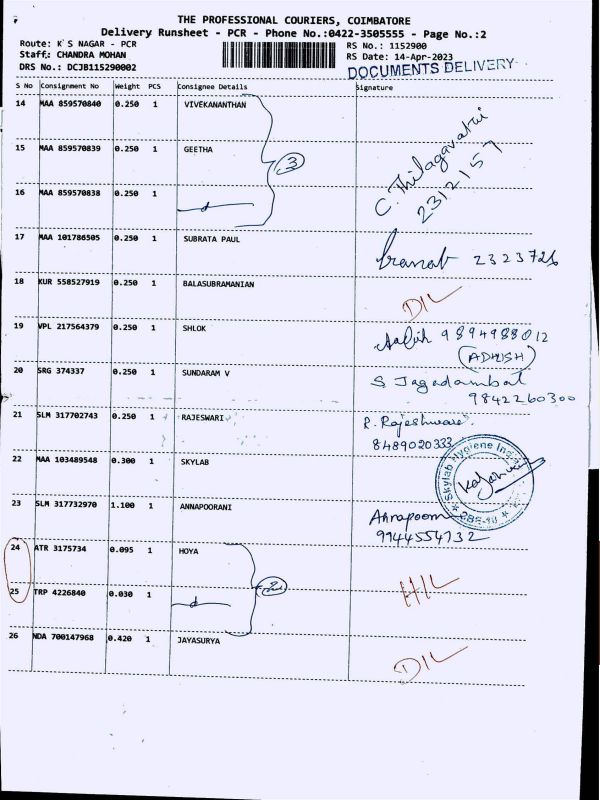 THE PROFESSIONAL COURIERS, COIMBATORE
Delivery Runsheet - PCR - Phone No.:0422-3505555 - Page No.:2
Route: K`S NAGAR - PCR RS No.: 1152900
Staff.: CHANDRA MOHAN RS Date: 14-Apr-2023
DRS No.: DCJB115290002 DOCUMENTS DELIVERY
S No Consignment No Weight PCS Consignee Details Signature
14 MAA 859570840 0.250 1 VIVEKANANTHAN
15 MAA 859570839 0.250 1 GEETHA
3
C. Thilagavathi
2312157
16 MAA 859570838 0.250 1
17 MAA 101786505 0.250 1 SUBRATA PAUL
2323726
18 KUR 558527919 0.250 1 BALASUBRAMANIAN
D/L
19 VPL 217564379 0.250 1 SHLOK
9894988012
(ADHISH)
20 SRG 374337 0.250 1 SUNDARAM V
S Jagadambal
9842260300
21 SLM 317702743 0.250 1 RAJESWARI
R. Rajeshware
8489020333
22 MAA 103489548 0.300 1 SKYLAB
Skylab Hygiene
23 SLM 317732970 1.100 1 ANNAPOORANI
Annapoorn
9944554732
24 ATR 3175734 0.095 1 HOYA
25 TRP 4226840 0.030 1
H/L
26 NDA 700147968 0.420 1 JAYASURYA
D/L